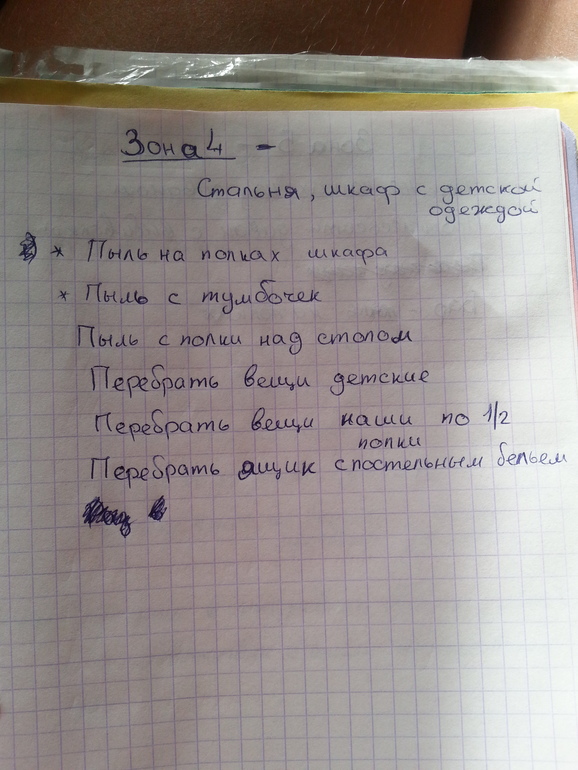 Зона 4 -
Спальня, шкаф с детской
одеждой
* Пыль на полках шкафа
* Пыль с тумбочек
Пыль с полки над столом
Перебрать вещи детские
Перебрать вещи наши по 1/2
полки
Перебрать ящик с постельным бельем